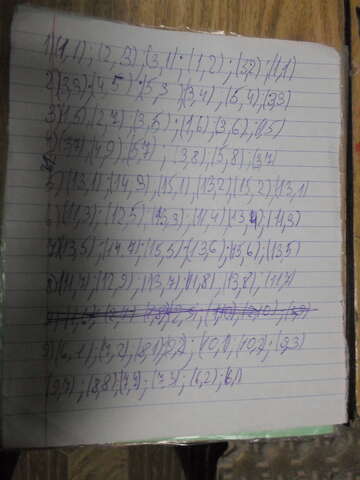 1) (1,1); (2,3) (3,1); (1,2); (3,2); (1,1)
2) (3,3); (4,5); (5,3) (3,4), (5,4), (3,3)
3) (1,5), (2,7), (3,5); (1,6), (3,6), (1,5)
4) (3,7) (4,9) (5,7); (3,8), (5,8), (3,7)
5) (13,1); (14,3), (15,1), (13,2), (15,2), (13,1)
6) (11,3); (12,5); (13,3); (11,4) (13,4), (11,3)
7) (13,5); (14,7); (15,5) (13,6); (15,6); (13,5)
8) (11,7); (12,9); (13,7), (11,8), (13,8), (11,7)
9) (6,1); (7,2); (8,1) (9,2); (10,1), (10,2); (9,3)
(9,7); (8,8), (7,7); (7,3); (6,2); (6,1)